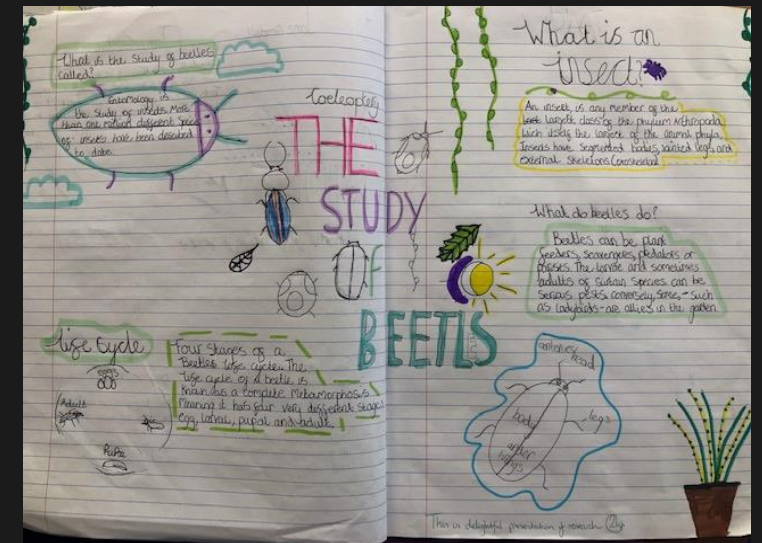 What is the study of beetles
called?
Entomology is
the study of insects. More
than one million different species
of insects have been described
to date.
Coeleoptery
THE
STUDY
OF
BEETLS
Life Cycle
eggs
Adult
PuPa
Four Stages of a
Beetles life cycle. The
life cycle of a beetle is
known as a complete Metamorphosis
Meaning it has four very different stages
egg, larval, pupal and adult.
What is an
insect?
An insect, is any member of the
largest class of the phylum Arthropada
wich itself the largest of the animal phyla.
Insects have Segmented bodies, jointed legs and
external skeletons (exoskeleton)
What do beetles do?
Beetles can be plant
feeders, scavengers, predators or
The larvae and sometimes
adults of certain species can be
serious pests. conversely, some, - such
as ladybirds - are allies in the garden
antenes
head
body
legs
under
wings
This is delightful presentation of research